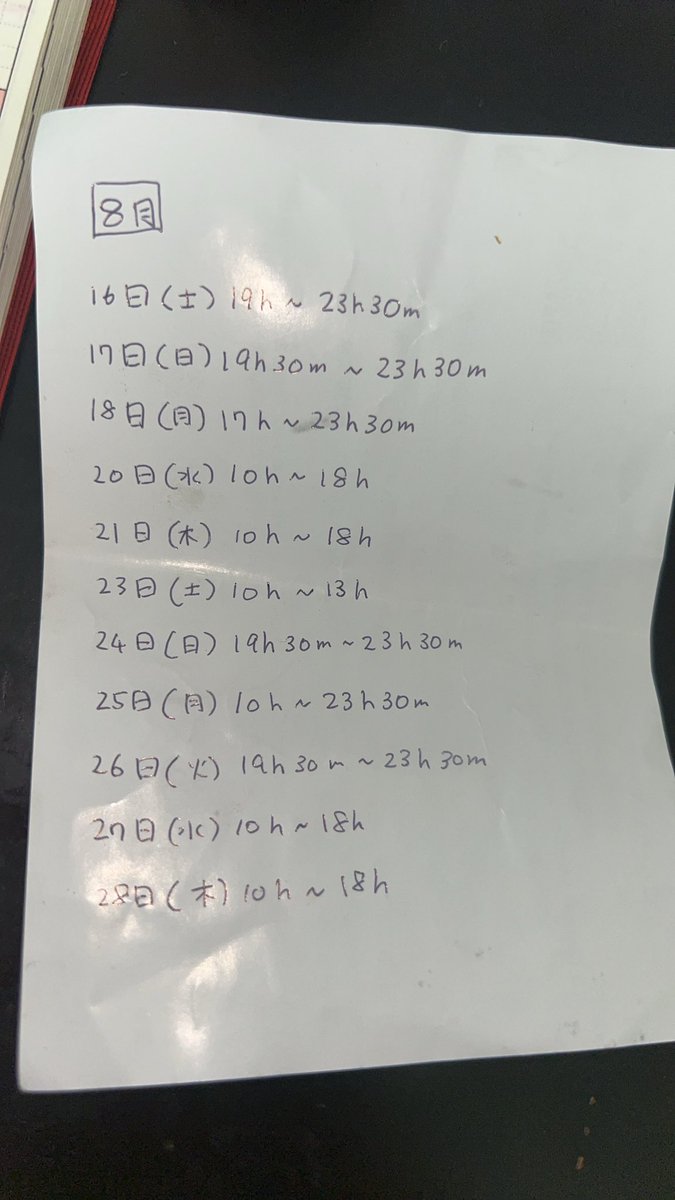 8月
16日(土) 19h ~ 23h30m
17日(日) 19h30m ~ 23h30m
18日(月) 17h ~ 23h30m
20日(水) 10h ~ 18h
21日(木) 10h ~ 18h
23日(土) 10h ~ 13h
24日(日) 19h30m ~ 23h30m
25日(月) 10h ~ 23h30m
26日(火) 19h30m ~ 23h30m
27日(水) 10h ~ 18h
28日(木) 10h ~ 18h